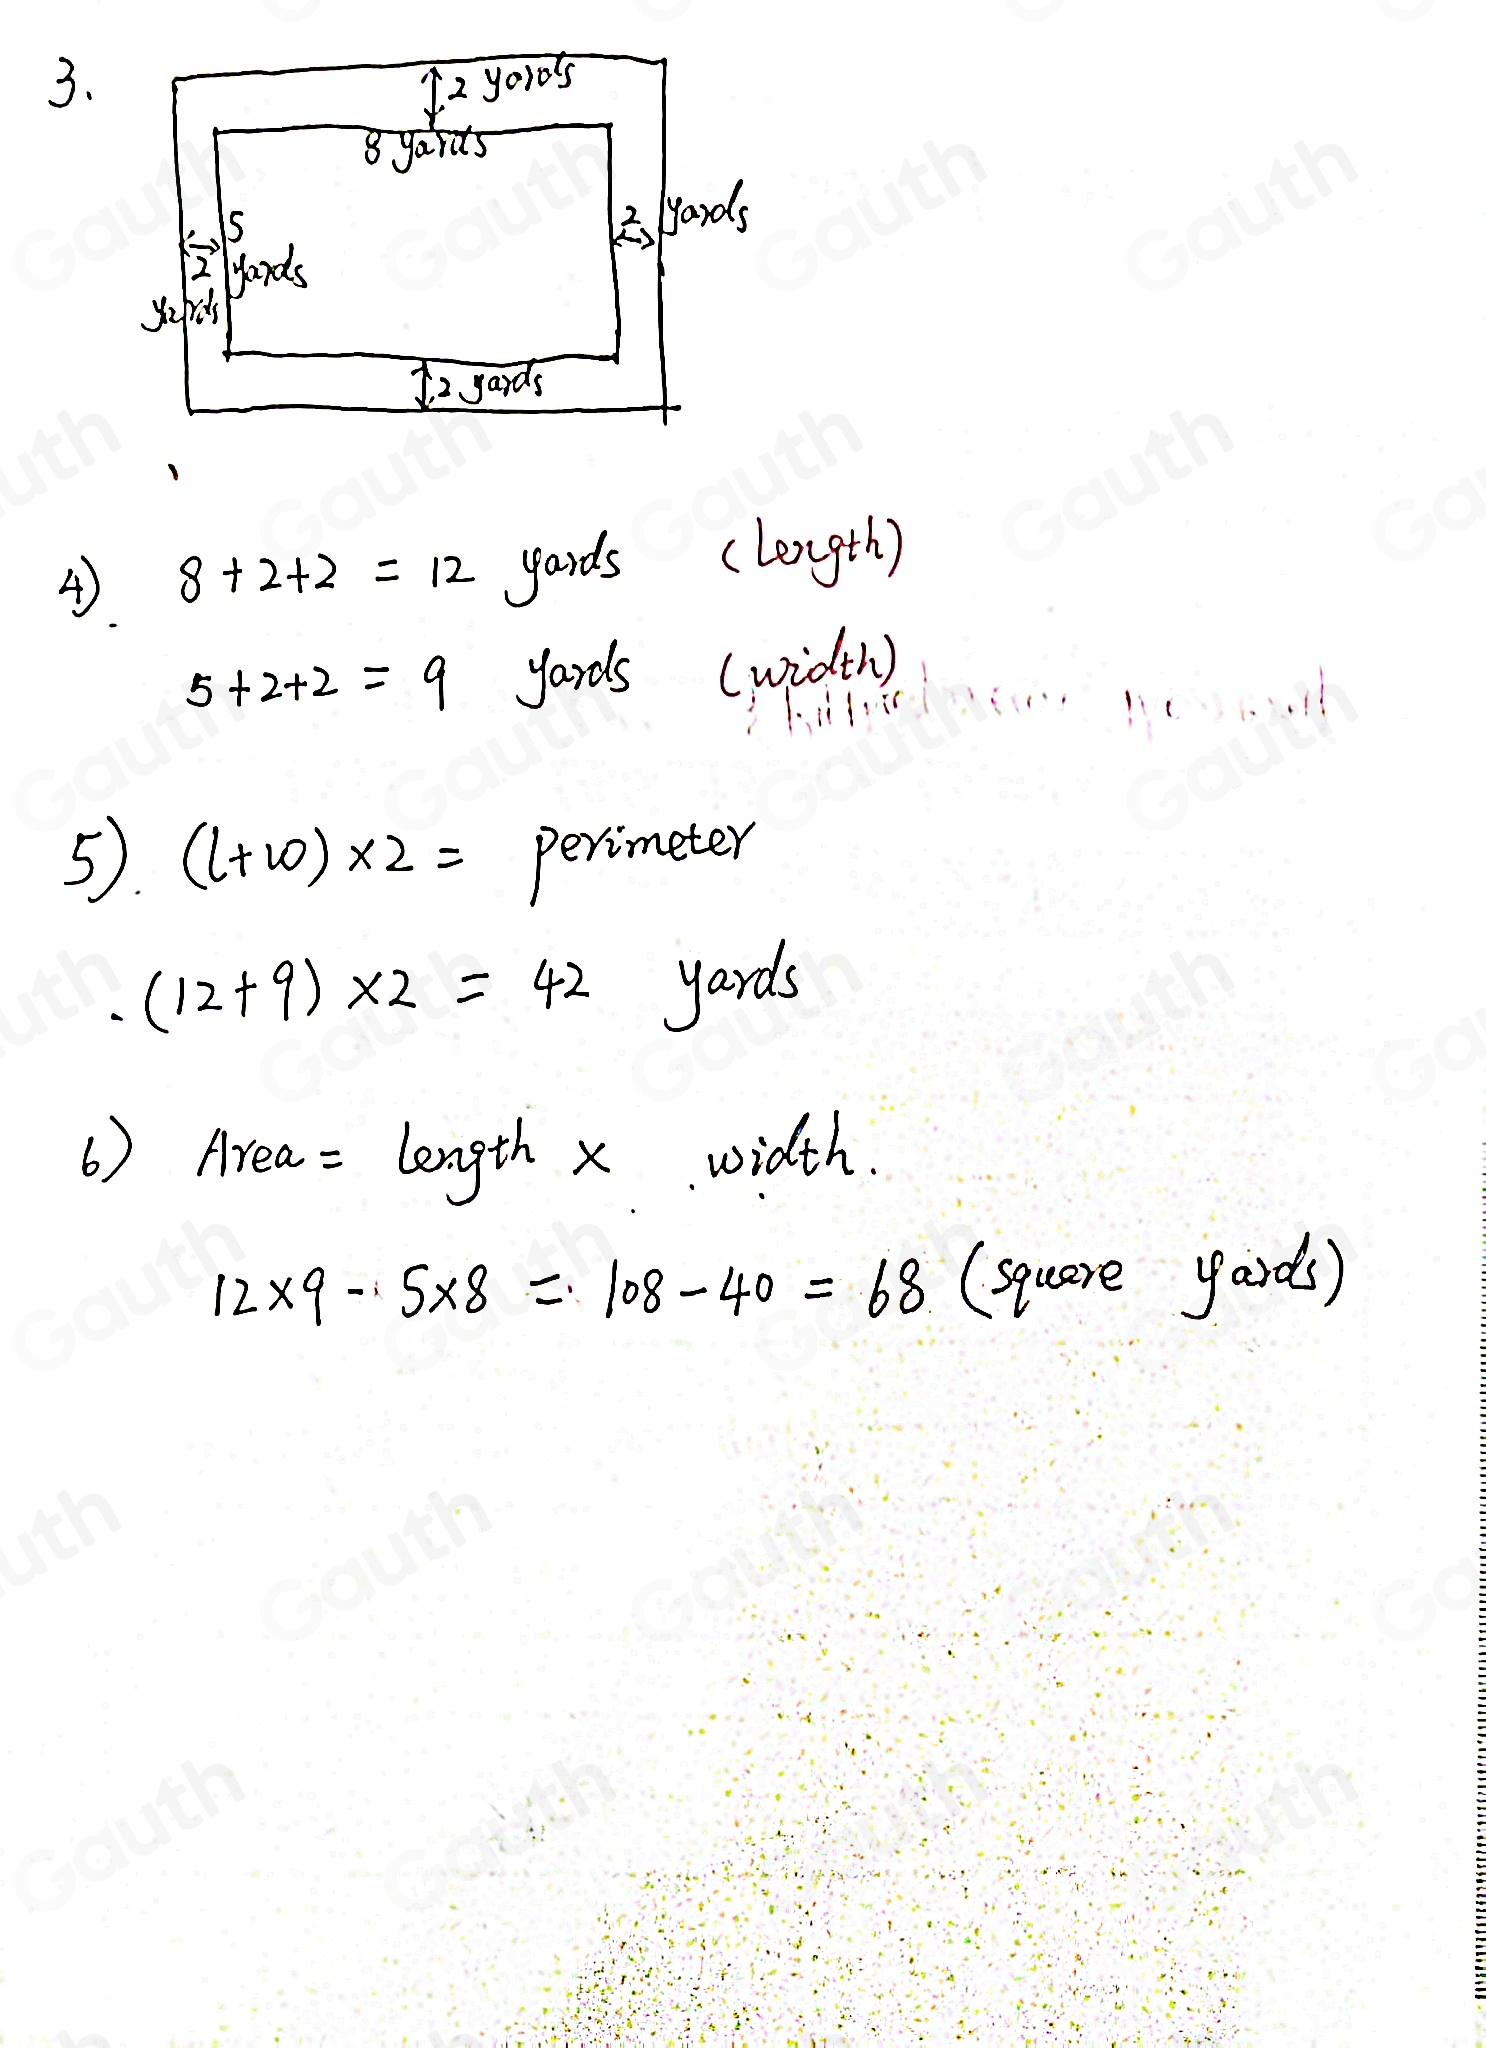 3.
2 yards
8 yards
5
yards
2
yards
2 yards
2 yards
4) 8+2+2 = 12 yards (length)
5+2+2 = 9 yards (width)
5). (l+w)×2 = perimeter
(12+9)×2 = 42 yards
6) Area = length × width.
12×9 - 5×8 = 108-40 = 68 (square yards)
Gauth